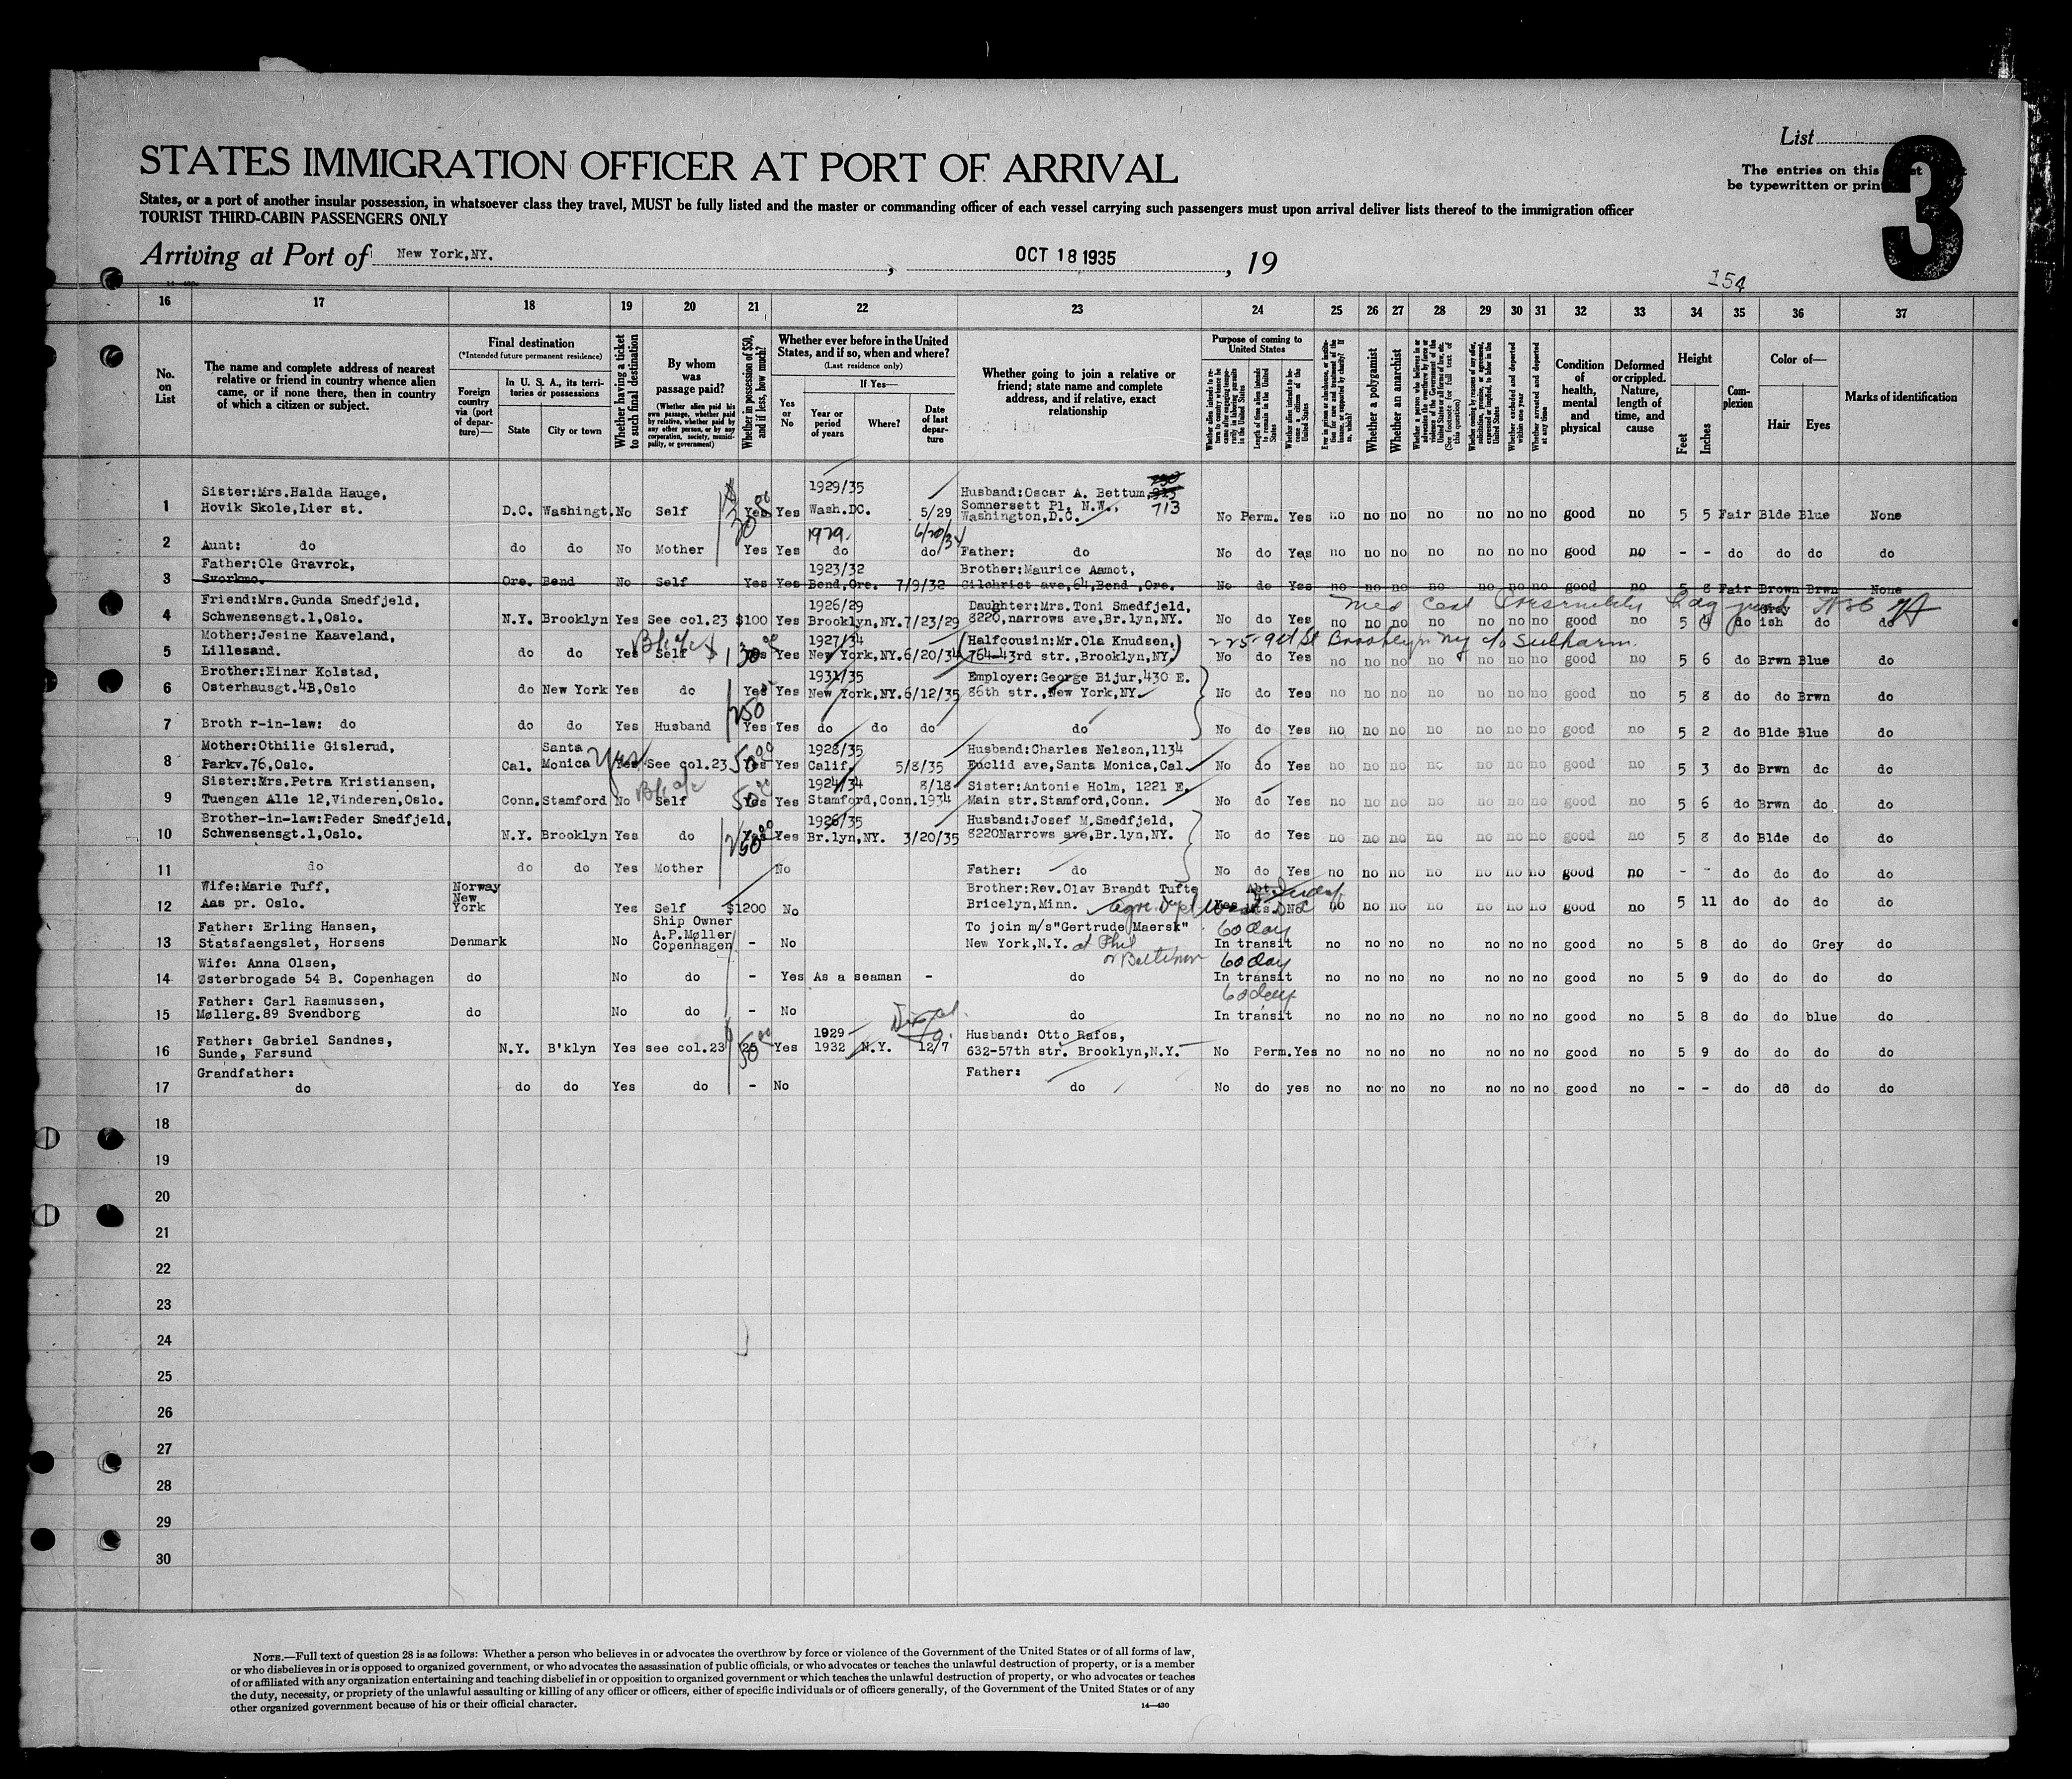 List
3
STATES IMMIGRATION OFFICER AT PORT OF ARRIVAL
The entries on this
be typewritten or prin
States, or a port of another insular possession, in whatsoever class they travel, MUST be fully listed and the master or commanding officer of each vessel carrying such passengers must upon arrival deliver lists thereof to the immigration officer
TOURIST THIRD-CABIN PASSENGERS ONLY
Arriving at Port of New York, NY. , OCT 18 1935 , 19
154
16 17 18 19 20 21 22 23 24 25 26 27 28 29 30 31 32 33 34 35 36 37
No. on List
The name and complete address of nearest relative or friend in country whence alien came, or if none there, then in country of which a citizen or subject.
Final destination
(*Intended future permanent residence)
Foreign country via (port of departure)—
In U. S. A., its territories or possessions
State City or town
Whether having a ticket to such final destination
By whom was passage paid?
(Whether alien paid his own passage, whether paid by relative, whether paid by any other person, or by any corporation, society, municipality, or government)
Whether in possession of $50, and if less, how much?
Whether ever before in the United States, and if so, when and where?
(Last residence only)
Yes or No
If Yes—
Year or period of years Where? Date of last departure
Whether going to join a relative or friend; state name and complete address, and if relative, exact relationship
Purpose of coming to United States
Length of time alien intends to remain in the United States
Whether alien intends to become a citizen of the United States
Whether a polygamist
Whether an anarchist
Whether excluded and deported within one year
Whether arrested and deported at any time
Condition of health, mental and physical
Deformed or crippled. Nature, length of time, and cause
Height
Feet Inches
Complexion
Color of—
Hair Eyes
Marks of identification
1 Sister:Mrs.Halda Hauge, Hovik Skole,Lier st. D.C. Washingt. No Self Yes Yes 1929/35 Wash.DC. 5/29 Husband:Oscar A. Bettum, 713 Somnersett Pl. N.W., Washington,D.C. No Perm. Yes no no no no no no no good no 5 5 Fair Blde Blue None
2 Aunt: do do do No Mother Yes Yes 1929. do 6/20/34 do Father: do No do Yes no no no no no no no good no - - do do do do
3 Father:Ole Gravrok, Svorkmo. Ore. Bend No Self Yes Yes 1923/32 Bend,Ore. 7/9/32 Brother:Maurice Aamot, Gilchrist ave,64,Bend ,Ore. No do Yes no no no no no no no good no 5 8 Fair Brown Brwn None
4 Friend:Mrs.Gunda Smedfjeld, Schwensensgt.1,Oslo. N.Y. Brooklyn Yes See col.23 $100 Yes 1926/29 Brooklyn,NY. 7/23/29 Daughter:Mrs.Toni Smedfjeld, 8220,narrows ave,Br.lyn,NY. No do Yes no no no no no no no good no 5 4 do Grey ish do do
5 Mother:Jesine Kaaveland, Lillesand. do do Yes Self Yes Yes 1927/34 New York,NY. 6/20/34 (Halfcousin:Mr.Ola Knudsen,) 764-43rd str.,Brooklyn,NY. No do Yes no no no no no no no good no 5 6 do Brwn Blue do
6 Brother:Einar Kolstad, Osterhausgt.4B,Oslo do New York Yes do Yes Yes 1931/35 New York,NY. 6/12/35 Employer:George Bijur,430 E. 86th str.,New York,NY No do Yes no no no no no no no good no 5 8 do do Brwn do
7 Broth r-in-law: do do do Yes Husband 250 Yes Yes do do do do No do Yes no no no no no no no good no 5 2 do Blde Blue do
8 Mother:Othilie Gislerud, Parkv.76,Oslo. Cal. Santa Monica Yes See col.23 Yes Yes 1928/35 Calif. 5/8/35 Husband:Charles Nelson,1134 Euclid ave,Santa Monica,Cal. No do Yes no no no no no no no good no 5 3 do Brwn do do
9 Sister:Mrs.Petra Kristiansen, Tuengen Alle 12,Vinderen,Oslo. Conn. Stamford No Self Yes Yes 1924/34 Stamford,Conn. 8/18 1934 Sister:Antonie Holm, 1221 E. Main str.Stamford,Conn. No do Yes no no no no no no no good no 5 6 do Brwn do do
10 Brother-in-law:Peder Smedfjeld, Schwensensgt.1,Oslo. N.Y. Brooklyn Yes do Yes Yes 1926/35 Br.lyn,NY. 3/20/35 Husband:Josef M.Smedfjeld, 8220Narrows ave,Br.lyn,NY. No do Yes no no no no no no no good no 5 8 do Blde do do
11 do do do Yes Mother No Father: do No do Yes no no no no no no no good no - - do do do do
12 Wife:Marie Tuff, Aas pr. Oslo. Norway New York Yes Self $1200 No Brother:Rev.Olav Brandt Tufte Bricelyn,Minn. no no no no no no no good no 5 11 do do do do
13 Father: Erling Hansen, Statsfaengslet, Horsens Denmark No Ship Owner A.P.Møller Copenhagen - No To join m/s"Gertrude Maersk" New York,N.Y. at Phil or Baltimore 60 day In transit no no no no no no no good no 5 8 do do Grey do
14 Wife: Anna Olsen, Østerbrogade 54 B. Copenhagen do No do - Yes As a seaman - do 60 day In transit no no no no no no no good no 5 9 do do do do
15 Father: Carl Rasmussen, Møllerg.89 Svendborg do No do - No do 60 day In transit no no no no no no no good no 5 8 do do blue do
16 Father: Gabriel Sandnes, Sunde, Farsund N.Y. B'klyn Yes see col.23 25 Yes 1929 1932 N.Y. 12/7 Husband: Otto Rafos, 632-57th str. Brooklyn,N.Y. No Perm. Yes no no no no no no no good no 5 9 do do do do
17 Grandfather: do do do Yes do - No Father: do No do yes no no no no no no no good no - - do do do do
18
19
20
21
22
23
24
25
26
27
28
29
30
NOTE.—Full text of question 28 is as follows: Whether a person who believes in or advocates the overthrow by force or violence of the Government of the United States or of all forms of law,
or who disbelieves in or is opposed to organized government, or who advocates the assassination of public officials, or who advocates or teaches the unlawful destruction of property, or is a member
of or affiliated with any organization entertaining and teaching disbelief in or opposition to organized government or which teaches the unlawful destruction of property, or who advocates or teaches
the duty, necessity, or propriety of the unlawful assaulting or killing of any officer or officers, either of specific individuals or of officers generally, of the Government of the United States or of any
other organized government because of his or their official character.
14—430